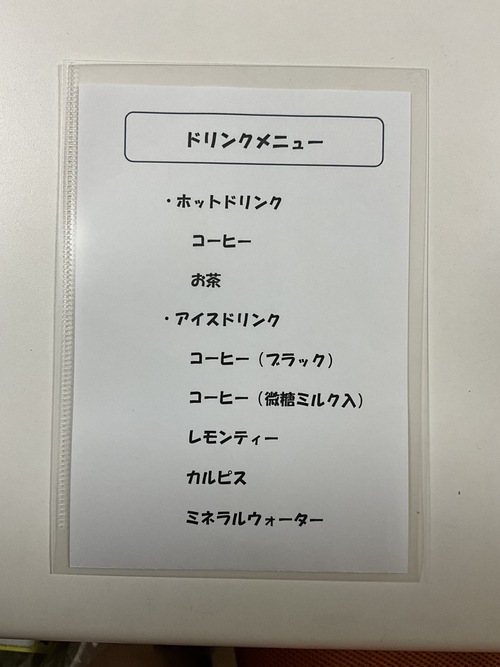 ドリンクメニュー
・ホットドリンク
コーヒー
お茶
・アイスドリンク
コーヒー（ブラック）
コーヒー（微糖ミルク入）
レモンティー
カルピス
ミネラルウォーター